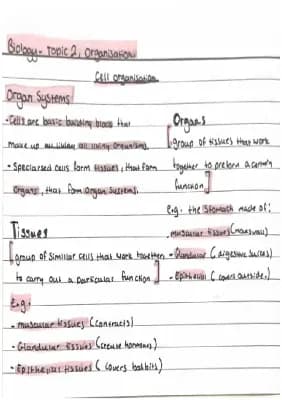 Biology - Topic 2; Organisation
Cell organisation
Organ Systems
- Cells are basic building blocks that
make up all living organisms.
- Specialised cells form tissues, that form
organs, that form organ systems.
Organs
[group of tissues that work
together to preform a certain
function]
e.g: the stomach made of:
- muscular tissues (moves wall)
- Glandular (digestive juices)
- Epithelial (covers outside,)
Tissues
[group of similar cells that work together
to carry out a particular function]
E.g:
- muscular tissues (contracts)
- Glandular tissues (create hormones)
- Epithelial tissues ( covers bobbits)